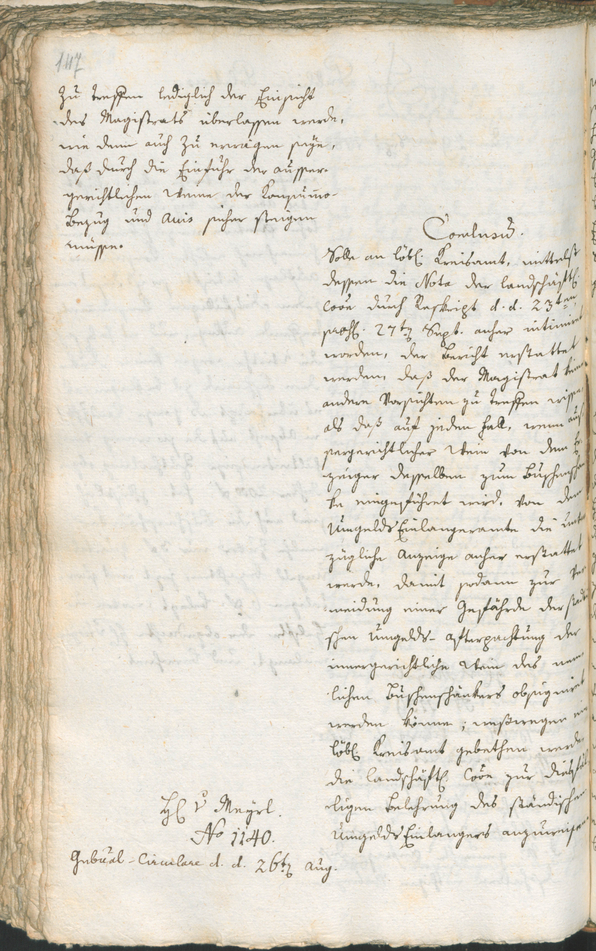 147
zu treffen lediglich der Einsicht
des Magistrats überlassen werde,
wie denn auch zu erwägen seÿe,
daß durch die Einfuhr der ausser-
gerichtlichen Weine der Konsumo-
Bezug und Accis sicher steigen
müsse.
Conclusum.
Solle an löbl. Kreisamt, mittelst
dessen die Nota der landschäftl.
durch Reskript d. d. 23ten
27t Sept. anher intimirt
worden, der Bericht erstattet
werden, daß der Magistrat keine
andere Vorsichten zu treffen wisse,
als daß auf jeden Fall, wenn aus-
sergerichtlicher Wein von dem
desselben zum Buschenschan-
ke eingeführet wird, von dem
Umgelds Einlangeramte die unver-
zügliche Anzeige anher erstattet
werde, damit sodann zur Ver-
meidung einer Gefährde der städti-
schen Umgelds- Afterpachtung der
innergerichtliche Wein des nem-
lichen Buschenschänkers obsignirt
werden könne; weßwegen ein
löbl. Kreisamt gebethen werde
die landschäftl. zur dießfäl-
ligen Belehrung des ständischen
Umgelds Einlangers anzuweisen.
H. v. Meyrl.
No 1140.
Gubernial-Circulare d. d. 26t Aug.